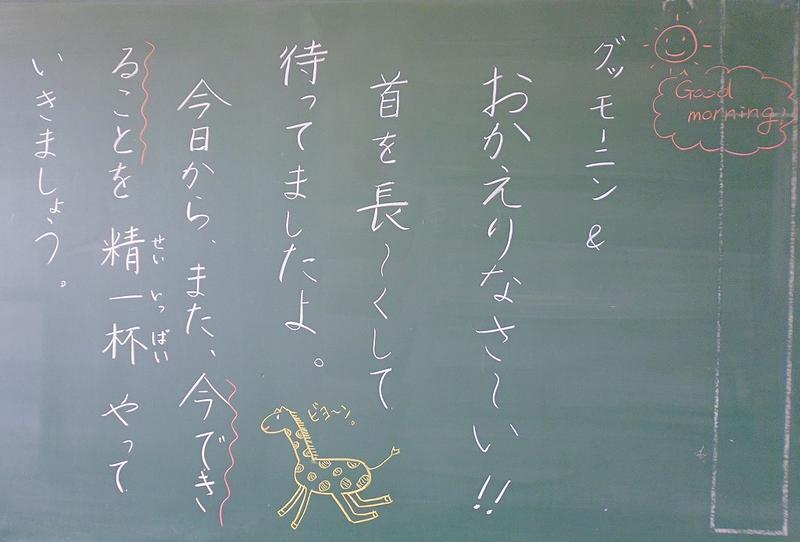 Good
morning
グッモーニン&
おかえりなさ～い!!
首を長～くして
待ってましたよ。
今日から、また、今でき
ることを精一杯やって
せいいっぱい
いきましょう。
ビヨ～ン。